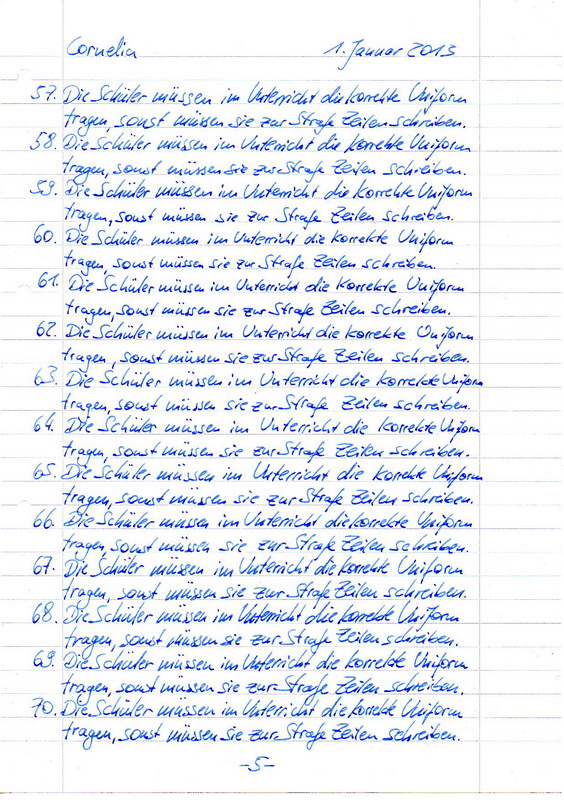 Cornelia 1. Januar 2013
57. Die Schüler müssen im Unterricht die korrekte Uniform
tragen, sonst müssen sie zur Strafe Zeilen schreiben.
58. Die Schüler müssen im Unterricht die korrekte Uniform
tragen, sonst müssen sie zur Strafe Zeilen schreiben.
59. Die Schüler müssen im Unterricht die korrekte Uniform
tragen, sonst müssen sie zur Strafe Zeilen schreiben.
60. Die Schüler müssen im Unterricht die korrekte Uniform
tragen, sonst müssen sie zur Strafe Zeilen schreiben.
61. Die Schüler müssen im Unterricht die korrekte Uniform
tragen, sonst müssen sie zur Strafe Zeilen schreiben.
62. Die Schüler müssen im Unterricht die korrekte Uniform
tragen, sonst müssen sie zur Strafe Zeilen schreiben.
63. Die Schüler müssen im Unterricht die korrekte Uniform
tragen, sonst müssen sie zur Strafe Zeilen schreiben.
64. Die Schüler müssen im Unterricht die korrekte Uniform
tragen, sonst müssen sie zur Strafe Zeilen schreiben.
65. Die Schüler müssen im Unterricht die korrekte Uniform
tragen, sonst müssen sie zur Strafe Zeilen schreiben.
66. Die Schüler müssen im Unterricht die korrekte Uniform
tragen, sonst müssen sie zur Strafe Zeilen schreiben.
67. Die Schüler müssen im Unterricht die korrekte Uniform
tragen, sonst müssen sie zur Strafe Zeilen schreiben.
68. Die Schüler müssen im Unterricht die korrekte Uniform
tragen, sonst müssen sie zur Strafe Zeilen schreiben.
69. Die Schüler müssen im Unterricht die korrekte Uniform
tragen, sonst müssen sie zur Strafe Zeilen schreiben.
70. Die Schüler müssen im Unterricht die korrekte Uniform
tragen, sonst müssen sie zur Strafe Zeilen schreiben.
-5-